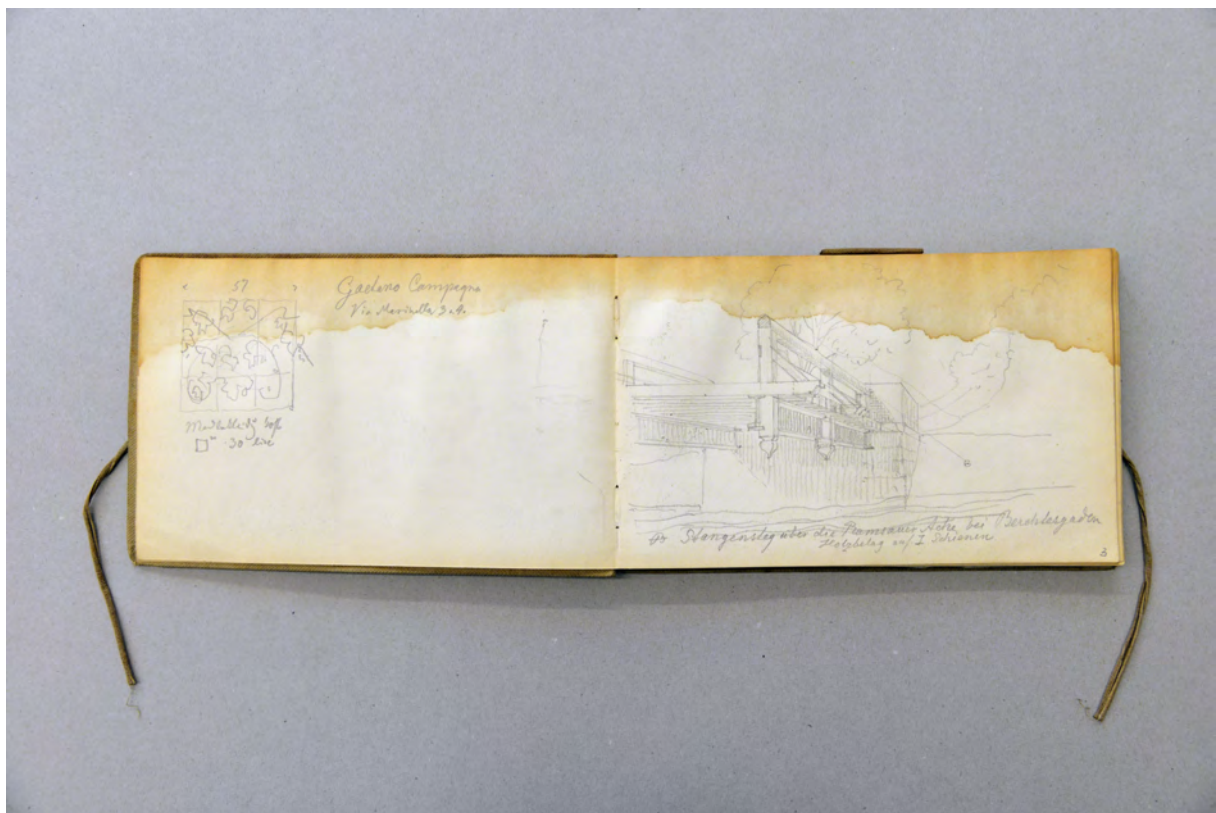 57
Gaetano Campagna
Via Marinella 3.4.
30 lire
Stangensteg über die Ramsauer Ache bei Berchtesgaden
Holzbelag auf I Schienen
3